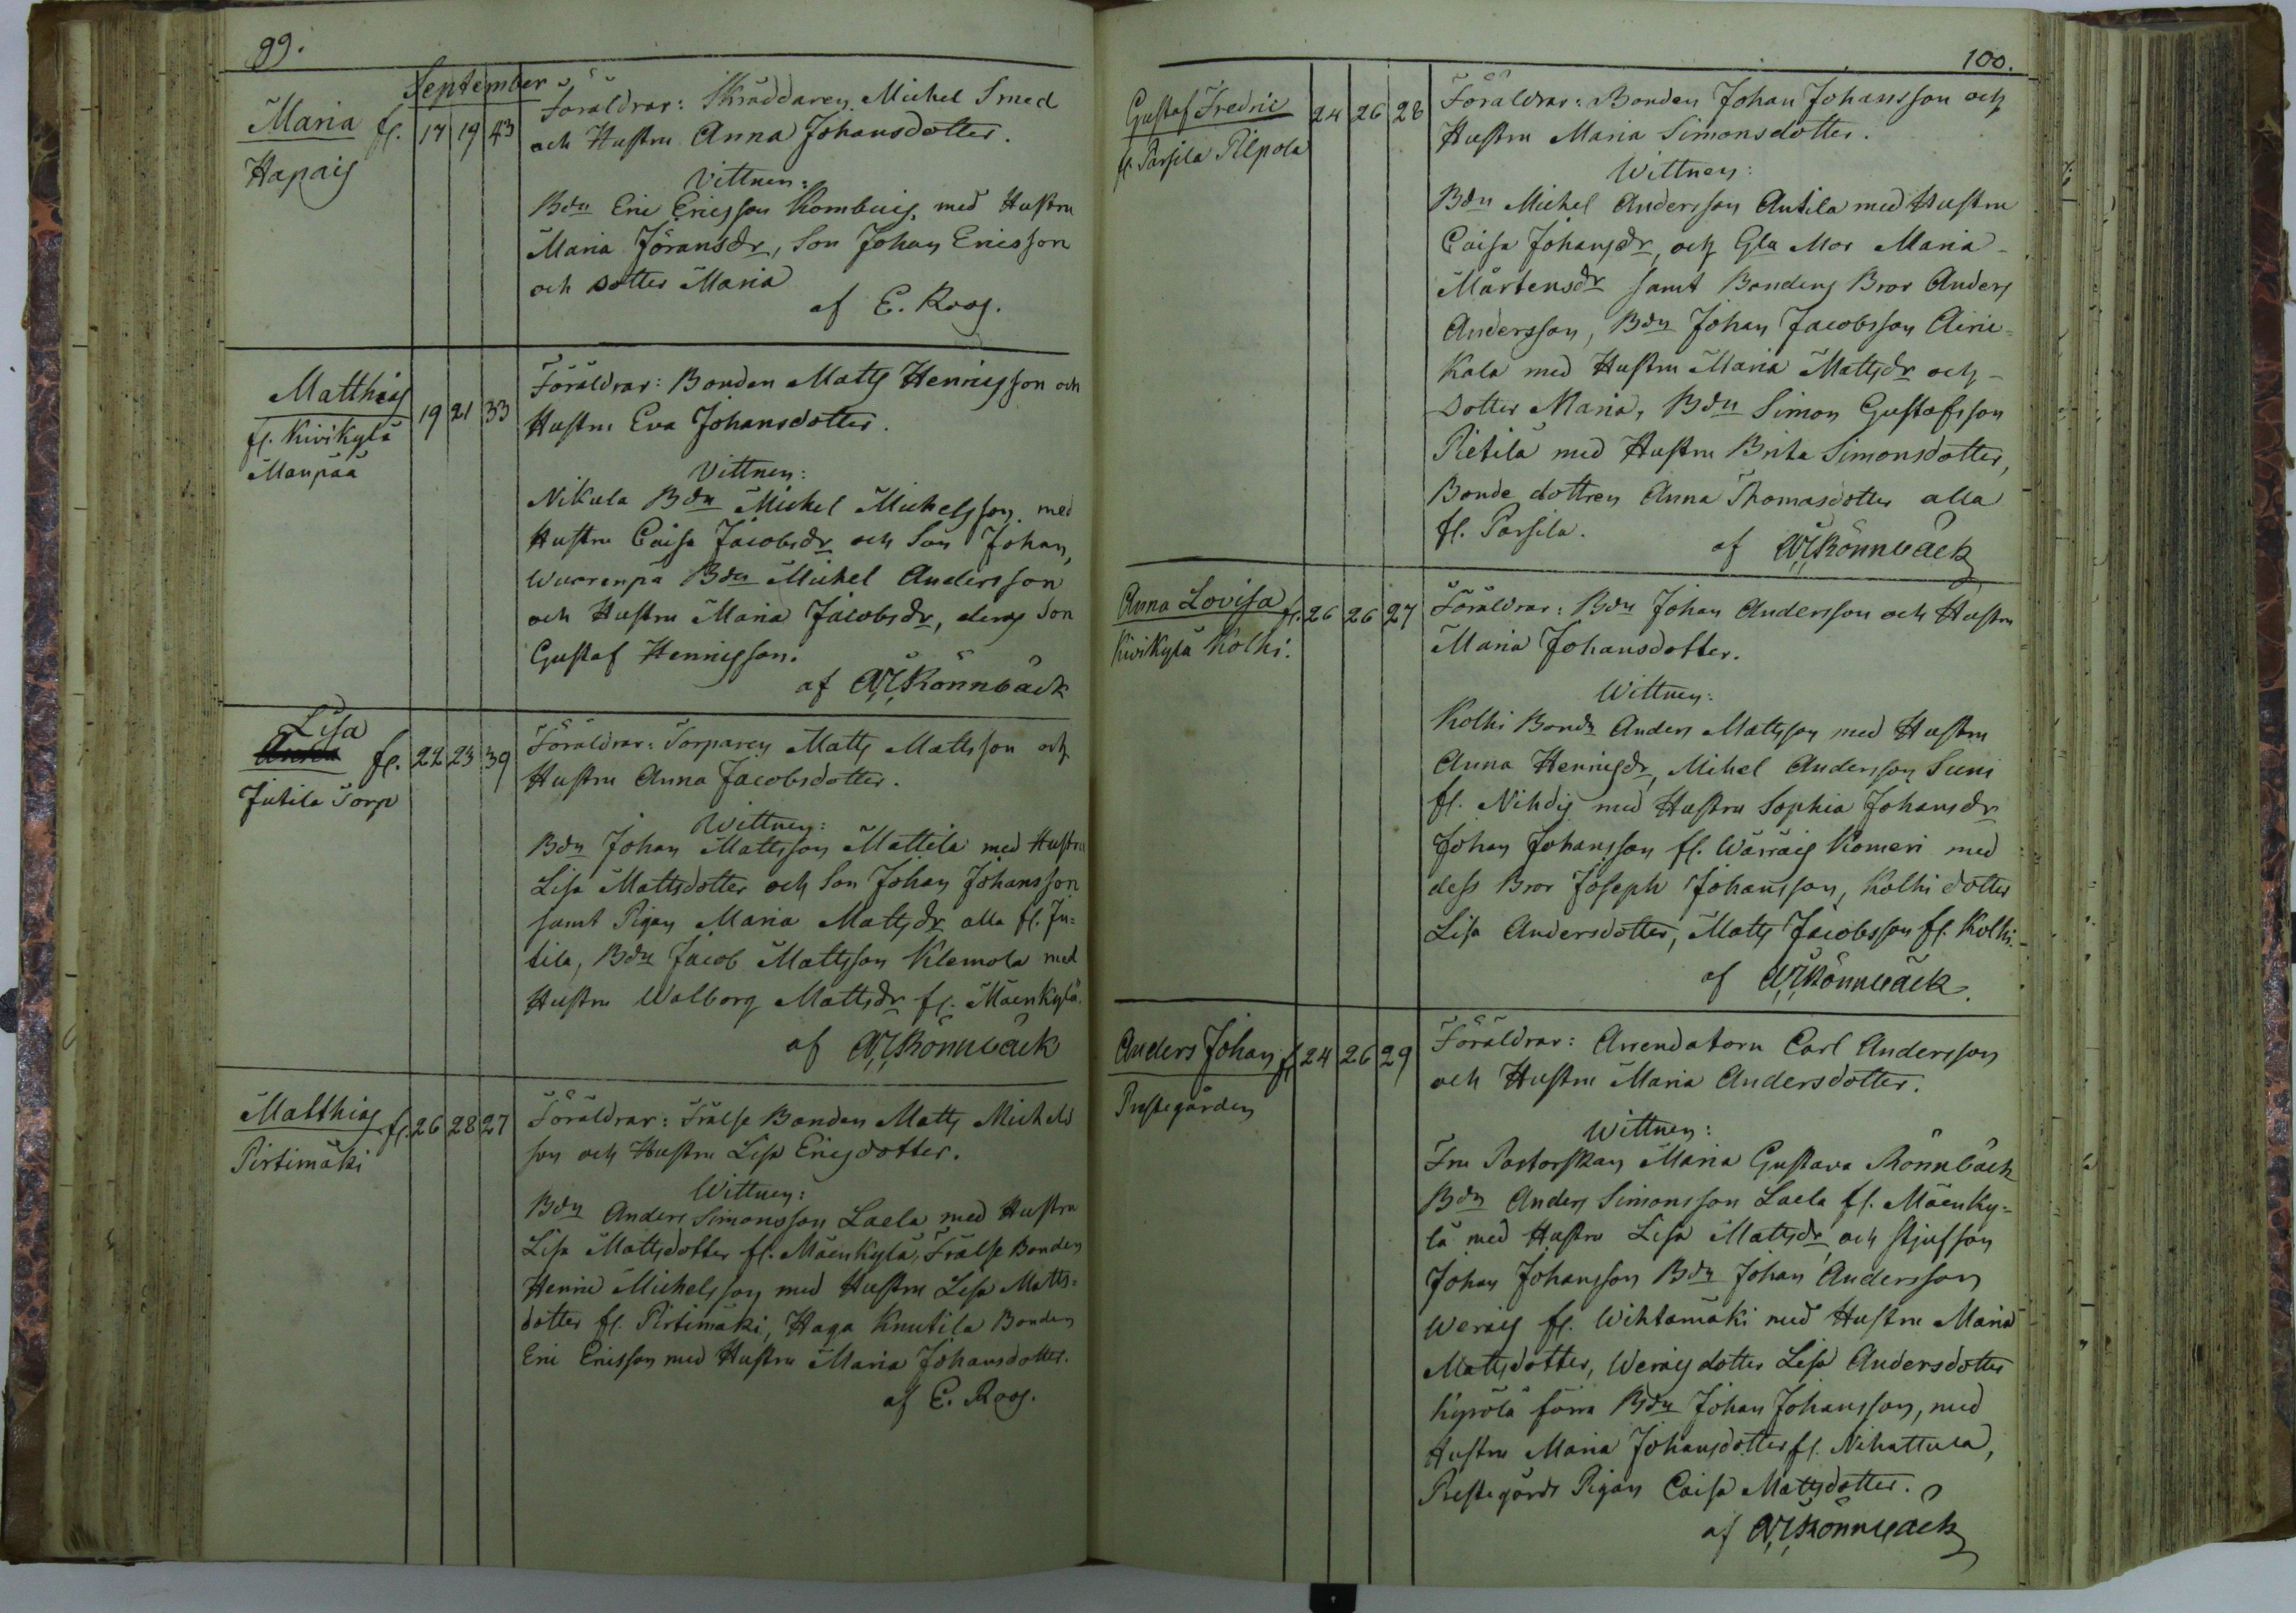 99.
September
Maria fr. 17 19 43
Hapais
Föräldrar: Skräddaren Michel Smed
och Hustru Anna Johansdotter.
Vittnen:
Bdn Eric Ericsson Kombuis, med Hustru
Maria Jöransdr, Son Johan Ericsson
och Dotter Maria
af E. Roos.
Matthias 19 21 33
fr. Kivikylä
Maupää
Föräldrar: Bonden Matts Henricsson och
Hustru Eva Johansdotter.
Vittnen:
Nikula Bdn Michel Michelsson med
Hustru Caisa Jacobsdr och Son Johan,
Wuorenpä Bdn Michel Andersson
och Hustru Maria Jacobsdr, deras Son
Gustaf Henricsson.
af Rönnbäck
Lisa
fr. 22 23 39
Jutila Torp
Föräldrar: Torparen Matts Mattsson och
Hustru Anna Jacobsdotter.
Wittnen:
Bdn Johan Mattsson Mattila med Hustru
Lisa Mattsdotter och Son Johan Johansson
samt Pigan Maria Mattsdr alla fr. Ju=
tila, Bdn Jacob Mattsson Klemola med
Hustru Walborg Mattsdr fr. Mäenkylä.
af Rönnbäck
Matthias fr. 26 28 27
Pirtimäki
Föräldrar: Frälse Bonden Matts Michels
son och Hustru Lisa Ericsdotter.
Wittnen:
Bdn Anders Simonsson Laela med Hustru
Lisa Mattsdotter fr. Mäenkylä, Frälse Bonden
Henric Michelsson med Hustru Lisa Matts=
dotter fr. Pirtimäki, Haga Knutila Bonden
Eric Ericsson med Hustru Maria Johansdotter.
af E. Roos.
100.
Gustaf Fredric 24 26 28
fr. Parsila Pilpola
Föräldrar: Bonden Johan Johansson och
Hustru Maria Simonsdotter.
Wittnen:
Bdn Michel Andersson Antila med Hustru
Caisa Johansdr, och Gla Mor Maria
Mårtensdr samt Bondens Bror Anders
Andersson, Bdn Johan Jacobsson Airic=
kala med Hustru Maria Mattsdr och
Dotter Maria, Bdn Simon Gustafsson
Pietilä med Hustru Brita Simonsdotter,
Bonde dottren Anna Thomasdotter alla
fr. Parsila.
af Rönnbäck
Anna Lovisa fr. 26 26 27
Kivikylä Kolhi.
Föräldrar: Bdn Johan Andersson och Hustru
Maria Johansdotter.
Wittnen:
Kolhi Bondn Anders Mattsson med Hustru
Anna Henricsdr, Mihel Andersson Suni
fr. Nihdis med Hustru Sophia Johansdr
Johan Johansson fr. Wärräis Komeri med
dess Bror Joseph Johansson, Kolhi dotter
Lisa Andersdotter, Matts Jacobsson fr. Kolhi.
af Rönnbäck.
Anders Johan fr 24 26 29
Prestegården
Föräldrar: Arrendatorn Carl Andersson
och Hustru Maria Andersdotter.
Wittnen:
Fru Pastorskan Maria Gustava Rönnbäck
Bdn Anders Simonsson Laela fr. Mäenky=
lä med Hustru Lisa Mattsdr och stjufson
Johan Johansson Bdn Johan Andersson
Weräis fr. Wihtamäki med Hustru Maria
Mattsdotter, Weräis dotter Lisa Andersdotter
Kyrölä förra Bdn Johan Johansson, med
Hustru Maria Johansdotter fr. Nihattula,
Prestegårds Pigan Caisa Mattsdotter.
af Rönnbäck